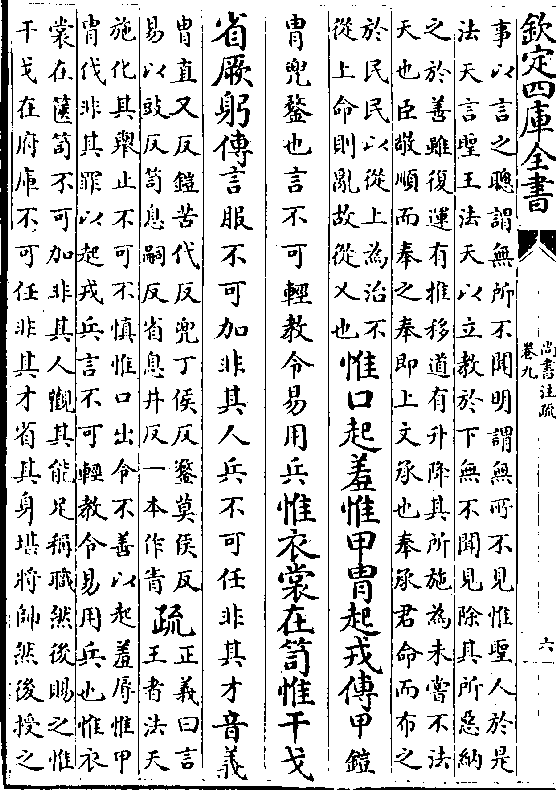 欽定四庫全書
尚書注疏
卷九
六
事以言之聰謂無所不聞明謂無所不見惟聖人於是
法天言聖王法天以立教於下無不聞見除其所惡納
之於善雖復運有推移道有升降其所施為未嘗不法
天也臣敬順而奉之奉即上文承也奉承君命而布之
於民民以從上為治不
從上命則亂故從乂也
惟口起羞惟甲胄起戎傳甲鎧
胄兜鍪也言不可輕教令易用兵惟衣裳在笥惟干戈
省厥躬傳言服不可加非其人兵不可任非其才音義
胄直又反鎧苦代反兜丁侯反鍪莫侯反
易以豉反笥息嗣反省息井反一本作眚
疏
正義曰言
王者法天
施化其舉止不可不慎惟口出令不善以起羞辱惟甲
胄伐非其罪以起戎兵言不可輕教令易用兵也惟衣
裳在篋笥不可加非其人觀其能足稱職然後賜之惟
干戈在府庫不可任非其才省其身堪將帥然後授之